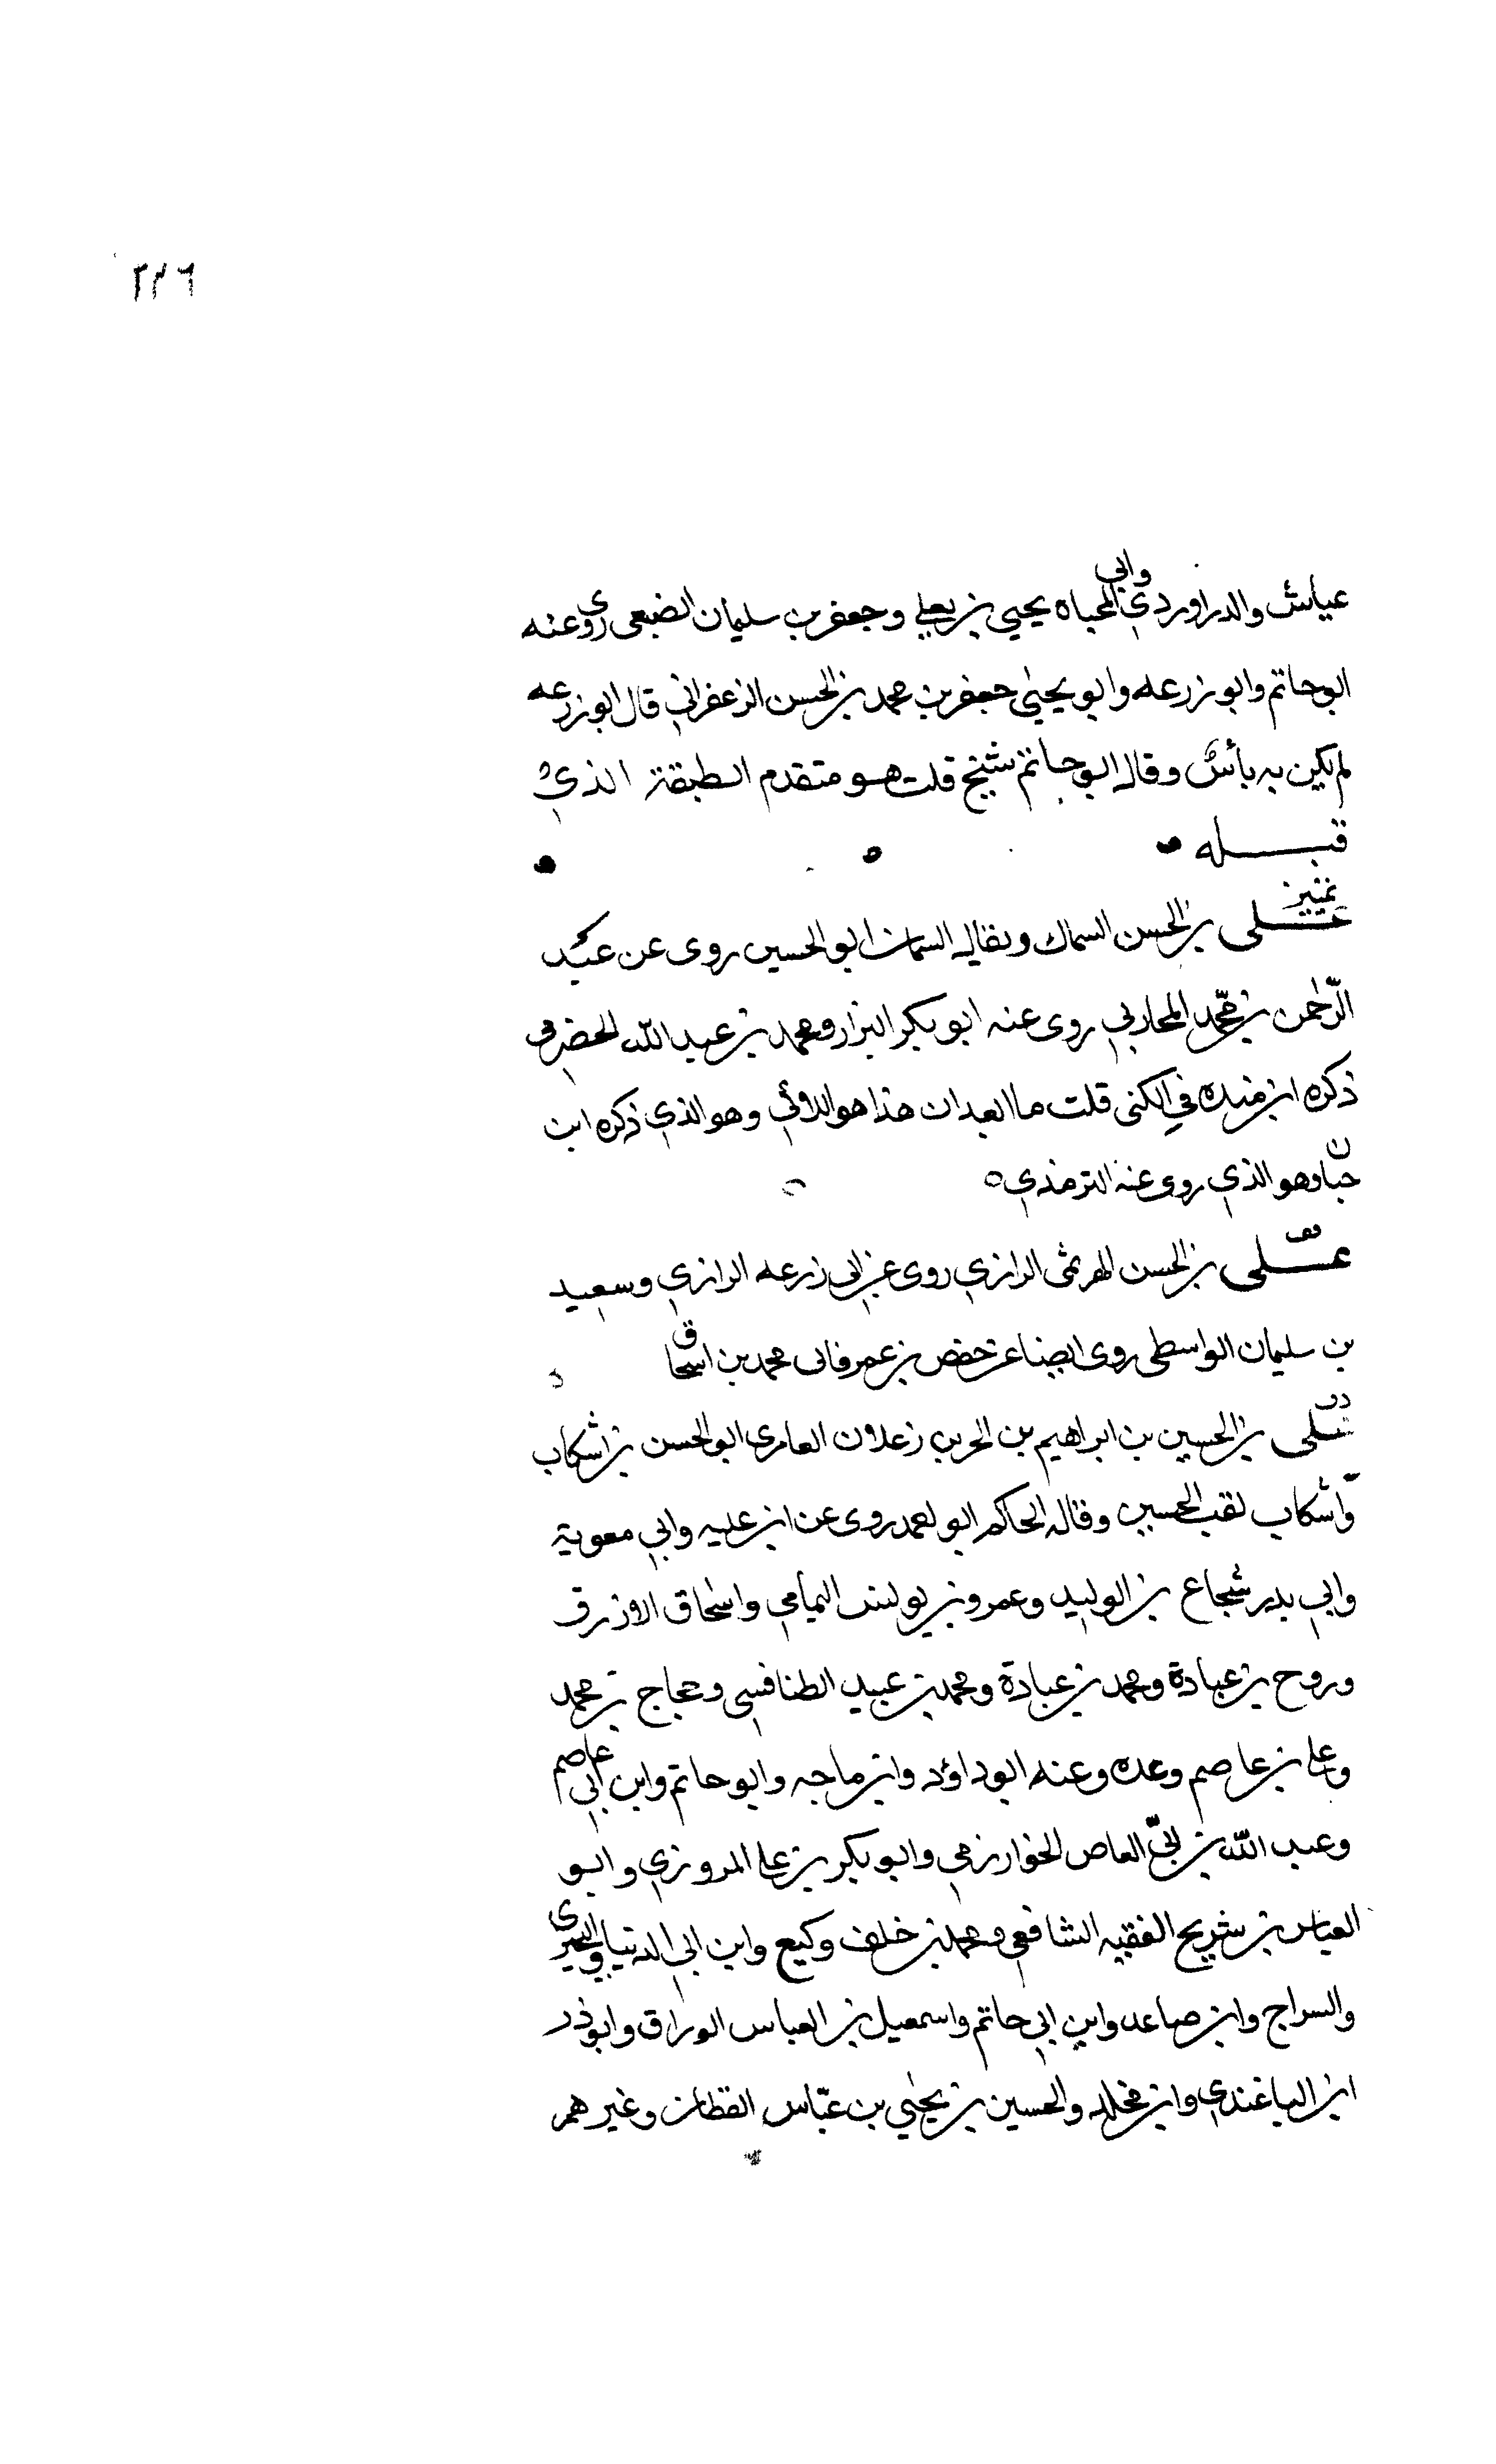 ٢٢٦
عياش والدراوردي وابي المحياه يحيى بن يعلى وجعفر بن سليمان الضبعى روى عنه
ابو حاتم وابو زرعه وابو يحيى جعفر بن محمد بن الحسن الزعفراني قال ابو زرعه
لم يكن به بأس وقال ابو حاتم شيخ قلت هو متقدم الطبقة الذي
قبله
تمييز
على بن الحسن السماك ويقال السمان ابو الحسين روى عن عبد
الرحمن بن محمد المحاربي روى عنه ابو بكر البزار ومحمد بن عبد الله الحضرمى
ذكره ابن منده في الكنى قلت ما ابعد ان هذا هو اللاني وهو الذي ذكره ابن
حبان وهو الذي روى عنه الترمذي
فق
على بن الحسن الهرثمى الرازي روى عن ابي زرعه الرازي وسعيد
بن سليمان الواسطى روى ايضا عن حفص بن عمر فانى محمد بن اسحاق
د ق
على بن الحسين بن ابراهيم بن الحر بن زعلان العامرى ابو الحسن بن اشكاب
واشكاب لقب الحسين وقال الحاكم ابو احمد روى عن ابن عليه وابي معوية
وابي بدر شجاع بن الوليد وعمرو بن يونس اليمامي واسحاق الازرق
وروح بن عبادة ومحمد بن عبادة ومحمد بن عبيد الطنافسي وحجاج بن محمد
وعلى بن عاصم وعده وعنه ابو داؤد وابن ماجه وابو حاتم وابن ابي عاصم
وعبد الله بن ابي العاص الخوارزمي وابو بكر بن على المروزي وابو
العباس بن سريج الفقيه الشافعي ومحمد بن خلف وكيع وابن ابي الدنيا والبجيرى
والسراج وابن صاعد وابن ابي حاتم واسمعيل بن العباس الوراق وابو ذر
ابن الباغندي وابن مخلد والحسين بن يحيى بن عياس القطان وغيرهم